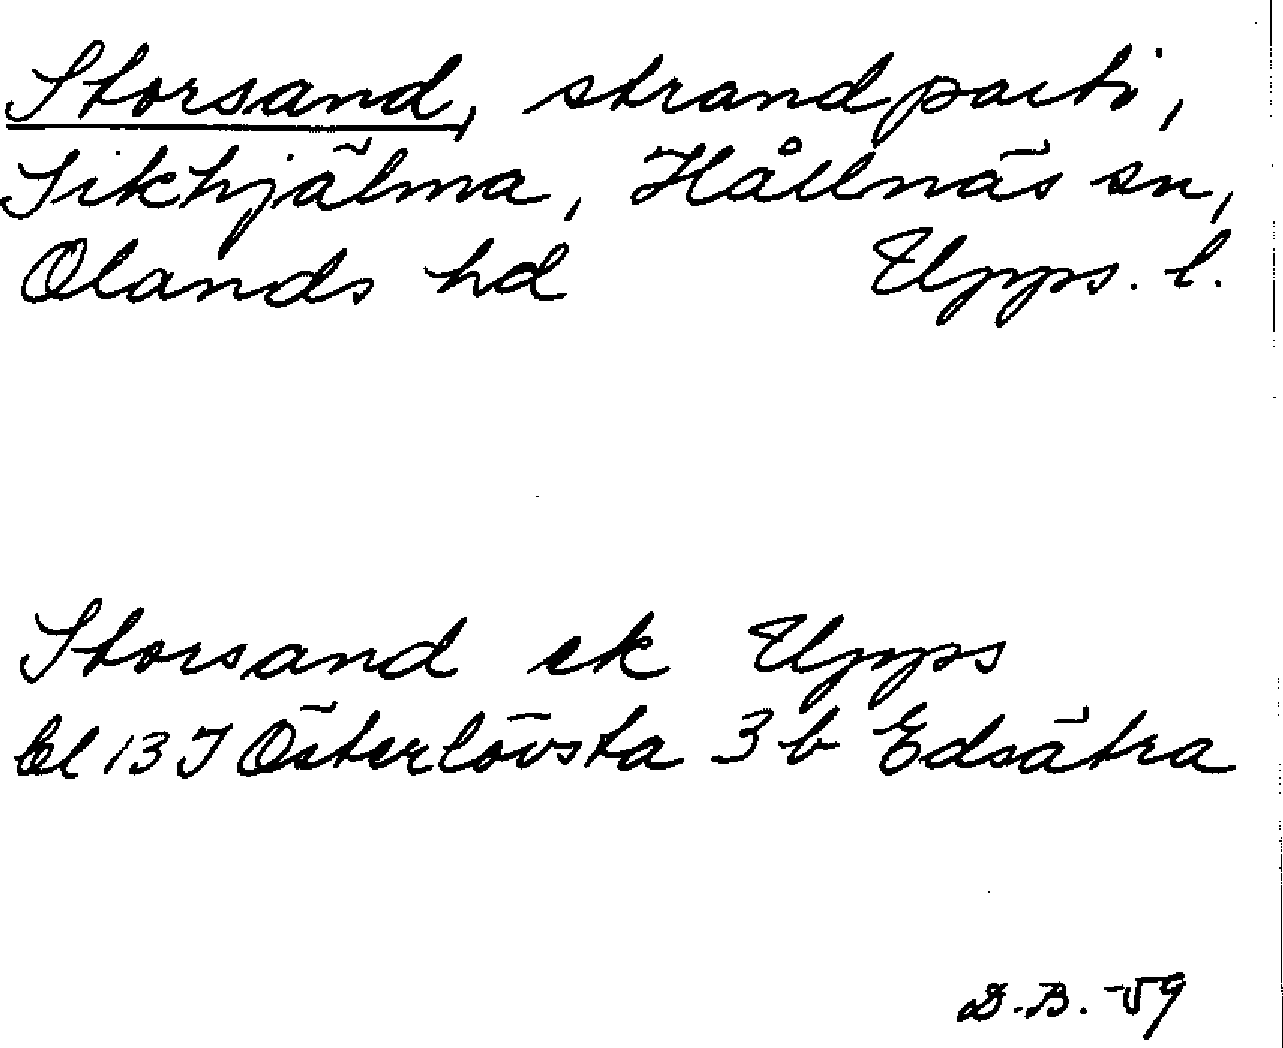 Storsand, strandparti,
Sikhjälma, Hållnäs sn,
Olands hd Upps. l.
Storsand ek Upps
bl 13 I Österlövsta 3 b Edsätra
D.B. -59